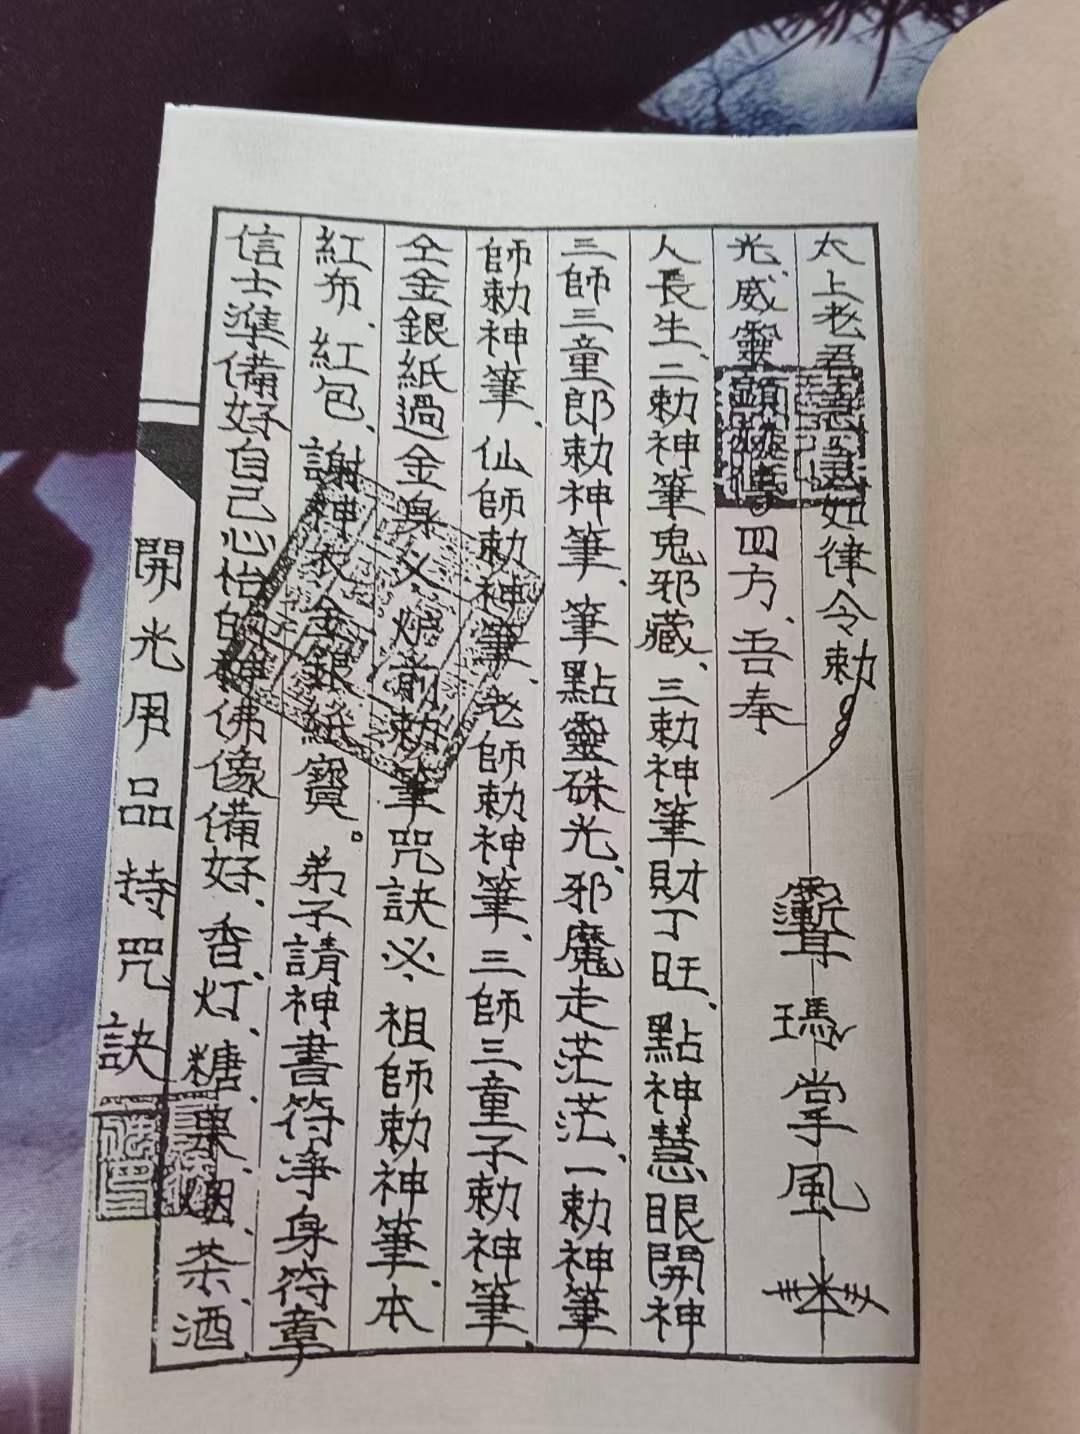 開光用品持咒訣
信士準備好自己心怡的神佛像備好、香、灯、糖菓、烟、茶、酒、
紅布、紅包、謝神衣金銀紙寶。弟子請神書符淨身符章
仝金銀紙過金身 炉前勅筆咒訣 祖師勅神筆、本
師勅神筆、仙師勅神筆、老師勅神筆、三師三童子勅神筆、
三師三童郎勅神筆、筆點靈硃光、邪魔走茫茫、一勅神筆
人長生、二勅神筆鬼邪藏、三勅神筆財丁旺、點神慧眼開神
光、威靈顯 四方、吾奉
太上老君 如律令勅
掌風